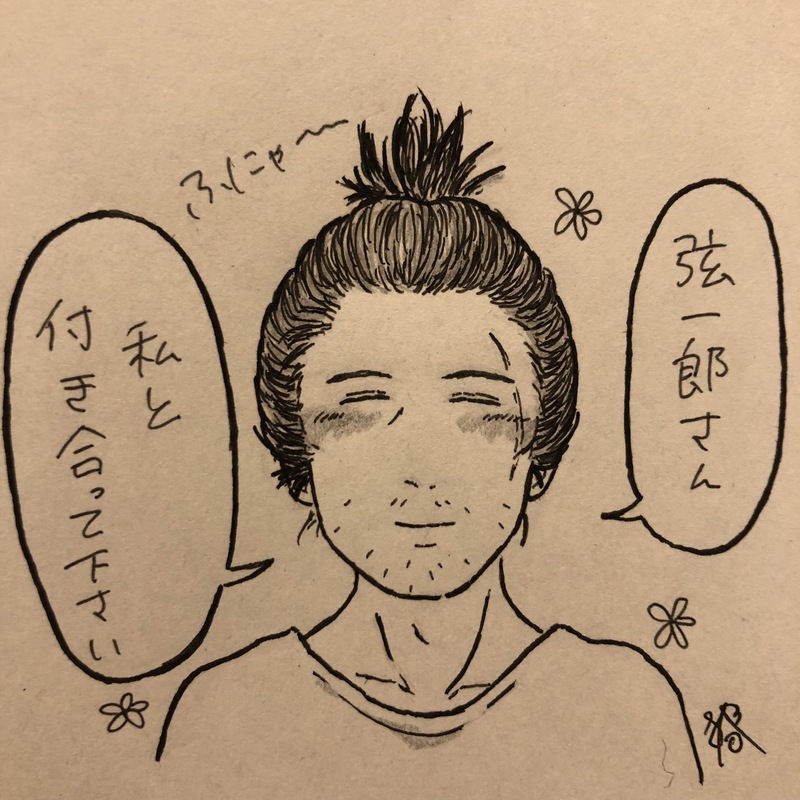 弦一郎さん
ふにゃ〜
私と
付き合って下さい